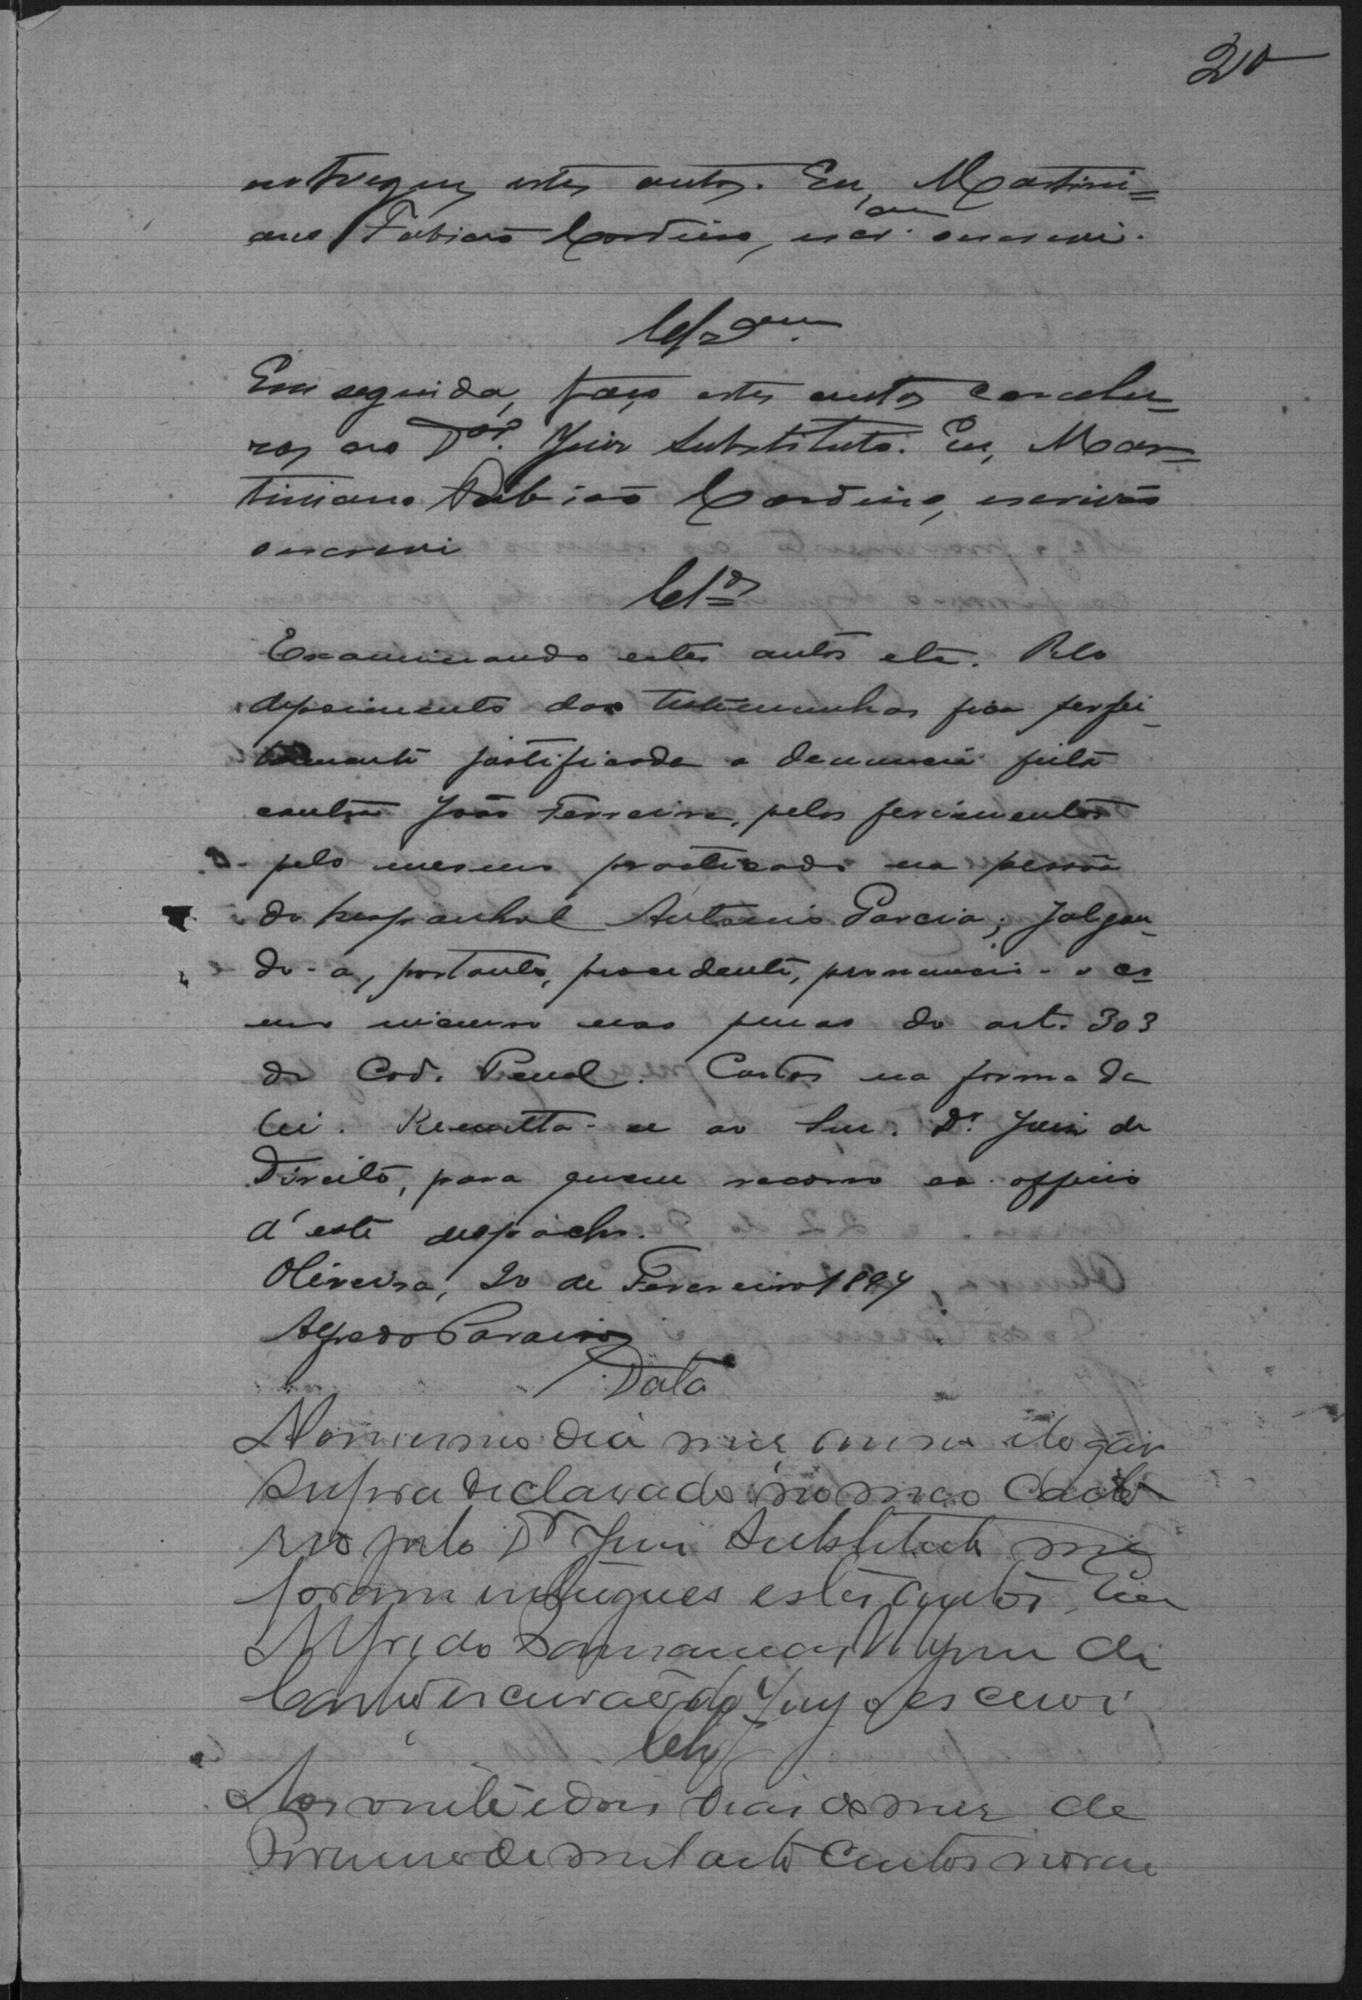 20
entregues estes autos. Eu, Martini=
ano Fabiano Cordeiro, escr.am o escrevi.
Clzam.
Em seguida, faço estes autos conclu=
zos ao Dor. Juiz Substituto. Eu, Mar=
tiniano Fabiano Cordeiro, escrivão
o escrevi
Clos
Examinando estes autos etc. Pelo
depoimento das testemunhas fica perfei-
tamente justificada a denuncia feita
contra João Ferreira, pelos ferimentos
pelo mesmo praticado na pessoa
do hespanhol Antonio Garcia; julgan-
do-a, portanto, procedente, pronuncio-o co=
mo incurso nas penas do art. 303
do Cod. Penal. Custas na forma da
lei. Remetta-se ao Snr. Dr. Juiz de
Direito, para quem recorro ex-officio
d'este despacho.
Oliveira, 20 de Fevereiro 1897
Alfredo Paraiso
Data
No mesmo dia mez anno e logar
supra declarado no meo Carto
rio pelo Dr Juiz Substituto me
foram entregues estes autos. Eu
Alfredo de
Castro escrivão do Jury o escrevi
Clz
Aos vinte e dois dias do mez de
Fevereiro de mil oito centos noven